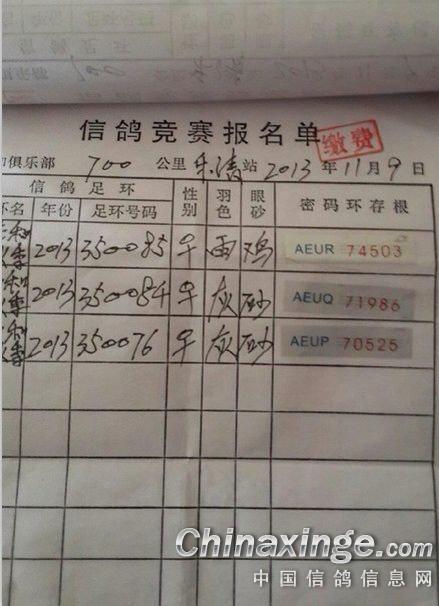 信鸽竞赛报名单
缴费
俱乐部 700 公里 乐清站 2013 年 11 月 9 日
信鸽足环 性别 羽色 眼砂 密码环存根
环名 年份 足环号码
2013 350085 ♀ 雨 鸡 AEUR 74503
2013 350084 ♀ 灰 砂 AEUQ 71986
2013 350076 ♀ 灰 砂 AEUP 70525
Chinaxinge.com
中国信鸽信息网